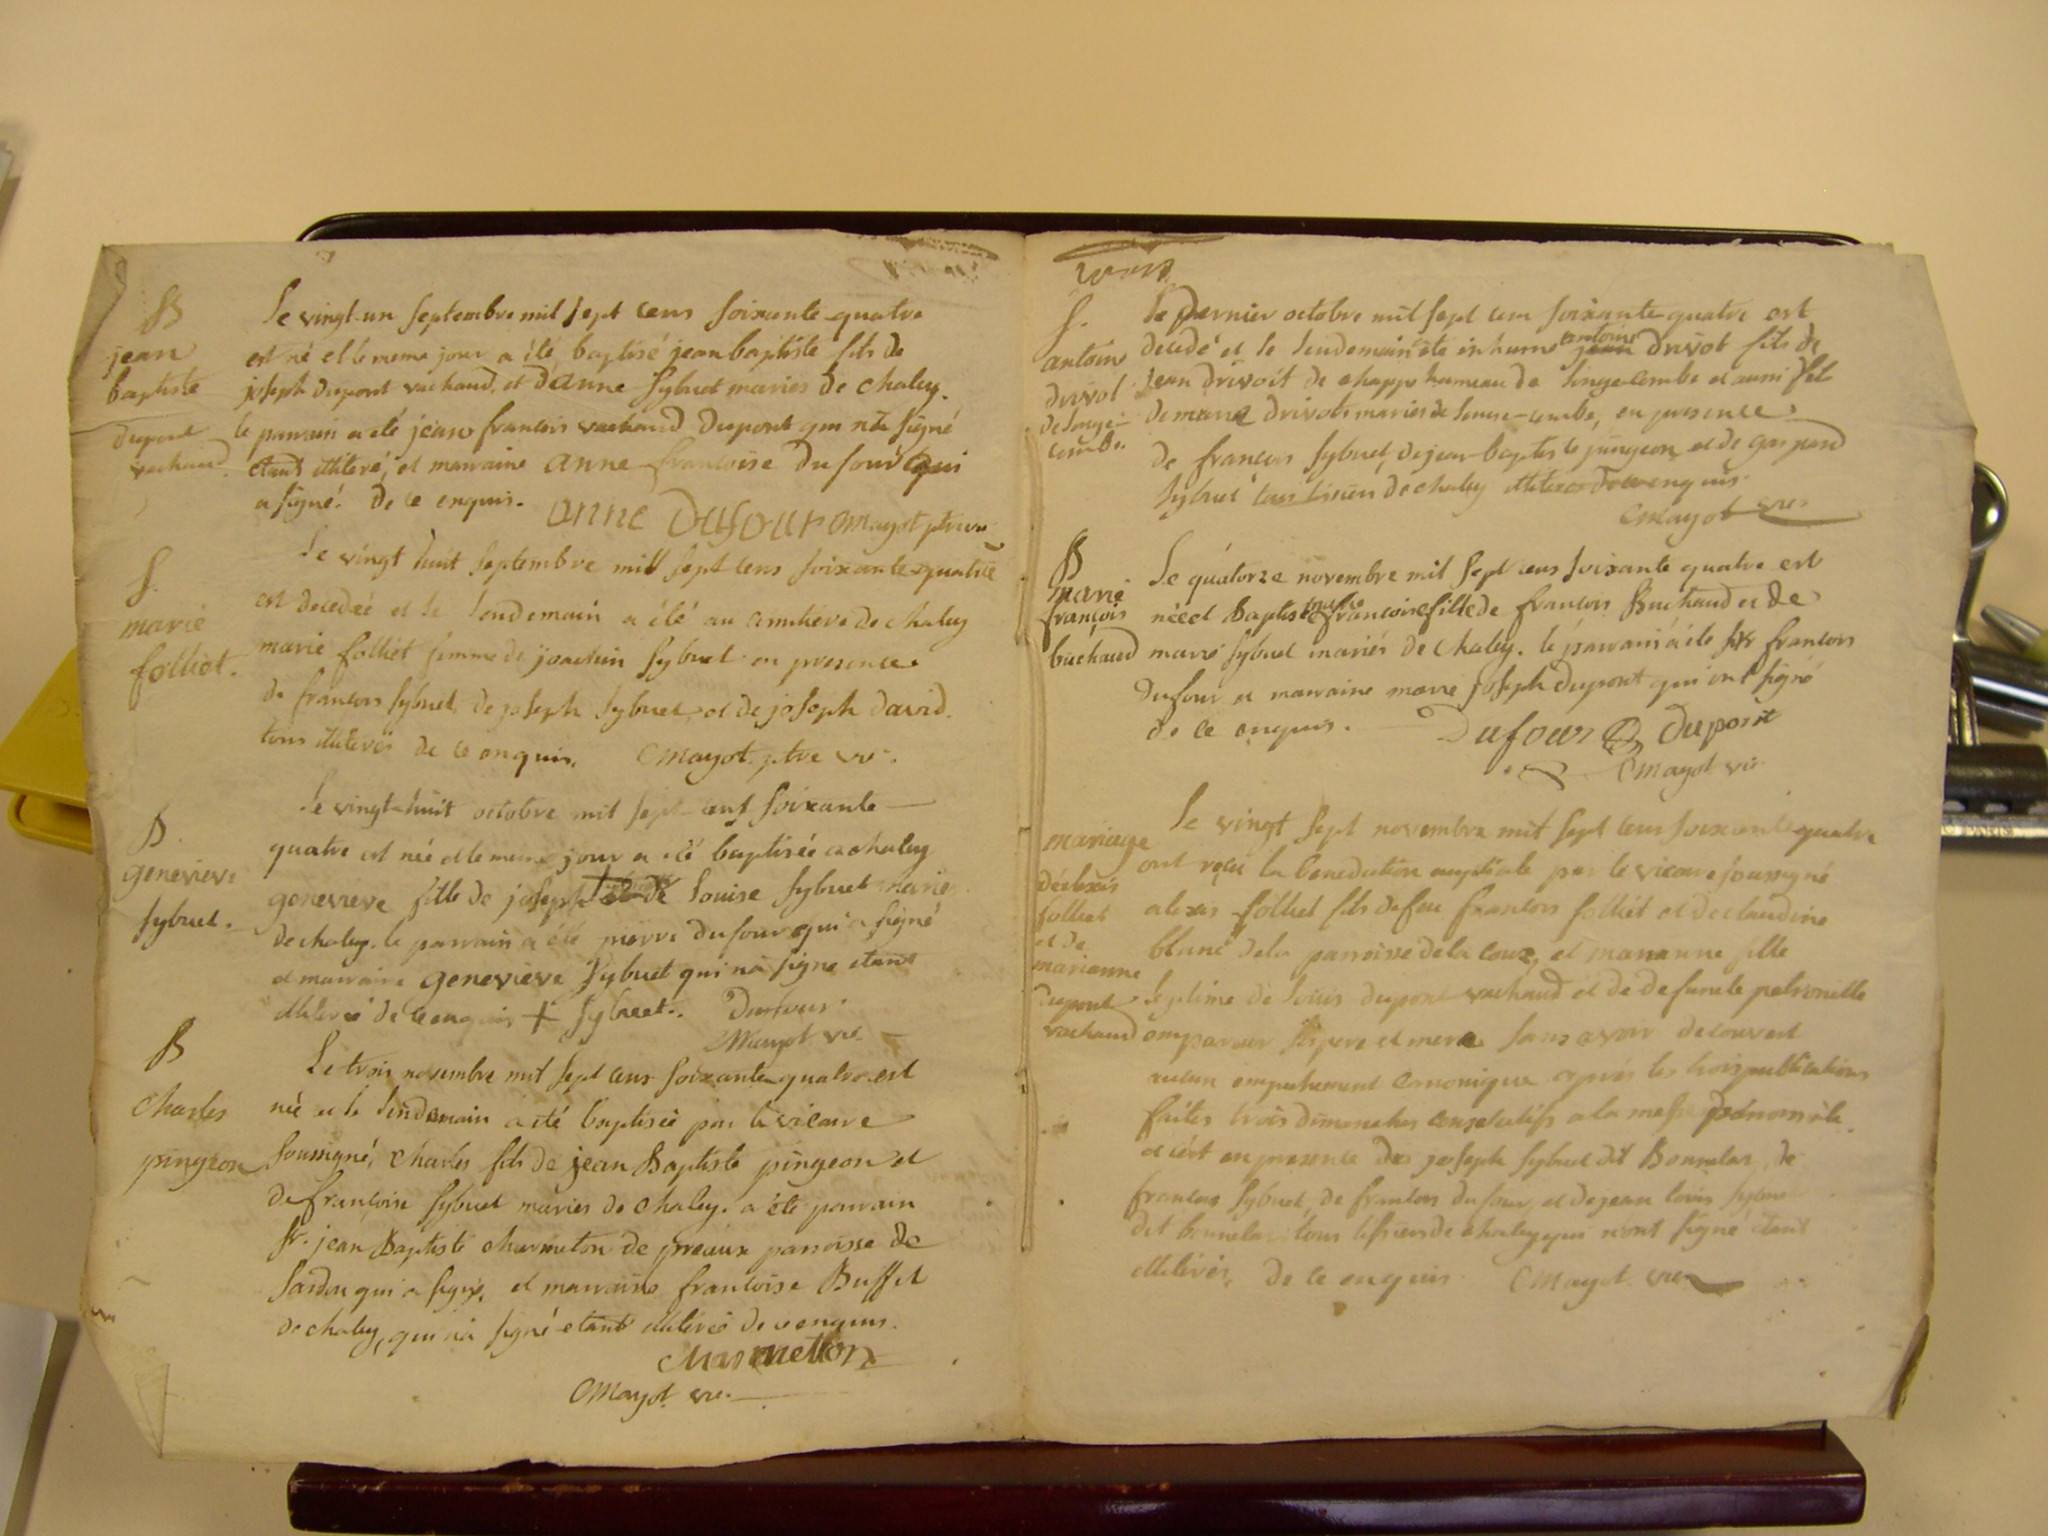 B
jean
baptiste
dupont
vachaud.
Le vingt-un septembre mil sept cens soixante-quatre
est né et le meme jour a été baptisé jean baptiste fils de
joseph dupont vachaud, et d'anne sybuet mariés de chaley.
le parrain a été jean francois vachaud dupont qui n'a signé
étant illiteré, et marraine anne francoise dufour qui
a signé. de ce enquis. anne Dufour Mayot ptre vic.
S.
marie
folliet.
Le vingt huit septembre mil sept cens soixante-quatre
est decedée et le lendemain a été au cimetiere de chaley
marie folliet femme de joachim sybuet en presence
de francois sybuet, de joseph sybuet, et de joseph david.
tous illiterés de ce enquis. Mayot ptre vic.
B.
genevieve
sybuet.
Le vingt-huit octobre mil sept cens soixante
quatre est née et le meme jour a été baptisée a chaley
genevieve fille de joseph et de Louise sybuet mariés
de chaley. le parrain a été pierre dufour qui a signé
et marraine genevieve sybuet qui n'a signe etant
illiterée de ce enquis + sybuet. Dufour
Mayot vic.
B
Charles
pingeon
Le trois novembre mil sept cens soixante-quatre est
né et le lendemain a été baptisé par le vicaire
soussigné, charles fils de jean Baptiste pingeon et
de francoise sybuet mariés de chaley. a été parrain
Sr. jean Baptiste charmeton de preaux paroisse de
qui a signé, et marraine francoise Buffet
de chaley, qui n'a signé etant illiterée de ce enquis.
Charmetton
Mayot vic.
S.
antoine
drivot
de longe-
combe.
Le Dernier octobre mil sept cens soixante-quatre est
decedé et le lendemain été inhumé antoine drivot fils de
jean drivoit de hameau de longecombe et aussi fils
de marie drivot mariés de longe-combe, en presence
de francois sybuet, de jean-baptiste pingeon, et de gaspard
sybuet tous de chaley illiterés de ce enquis.
Mayot vic.
B
marie
françois
buchaud
Le quatorze novembre mil sept cens soixante quatre est
née et Baptisée marie francoise fille de francois Buchaud et de
marie sybuet mariés de chaley. le parrain a été Sr francois
dufour et marraine marie joseph dupont qui ont signé
de ce enquis. Dufour Dupont
Mayot vic.
mariage
d'alexis
folliet
et de
marianne
dupont
vachaud
Le vingt sept novembre mil sept cens soixante quatre
ont reçu la benediction nuptiale par le vicaire soussigné
alexis folliet fils de feu francois folliet et de claudine
blanc de la paroisse de la coux, et marianne fille
legitime de louis dupont vachaud et de defuncte petronille
ses pere et mere sans avoir decouvert
aucun empechement canonique après les trois publications
faites trois dimanches consecutifs a la messe
et c'est en presence de joseph sybuet dit Bonnelas, de
francois sybuet, de francois dufour, et de jean louis sybuet
dit bonnelas tous de chaley qui n'ont signé etant
illiterés, de ce enquis. Mayot vic.